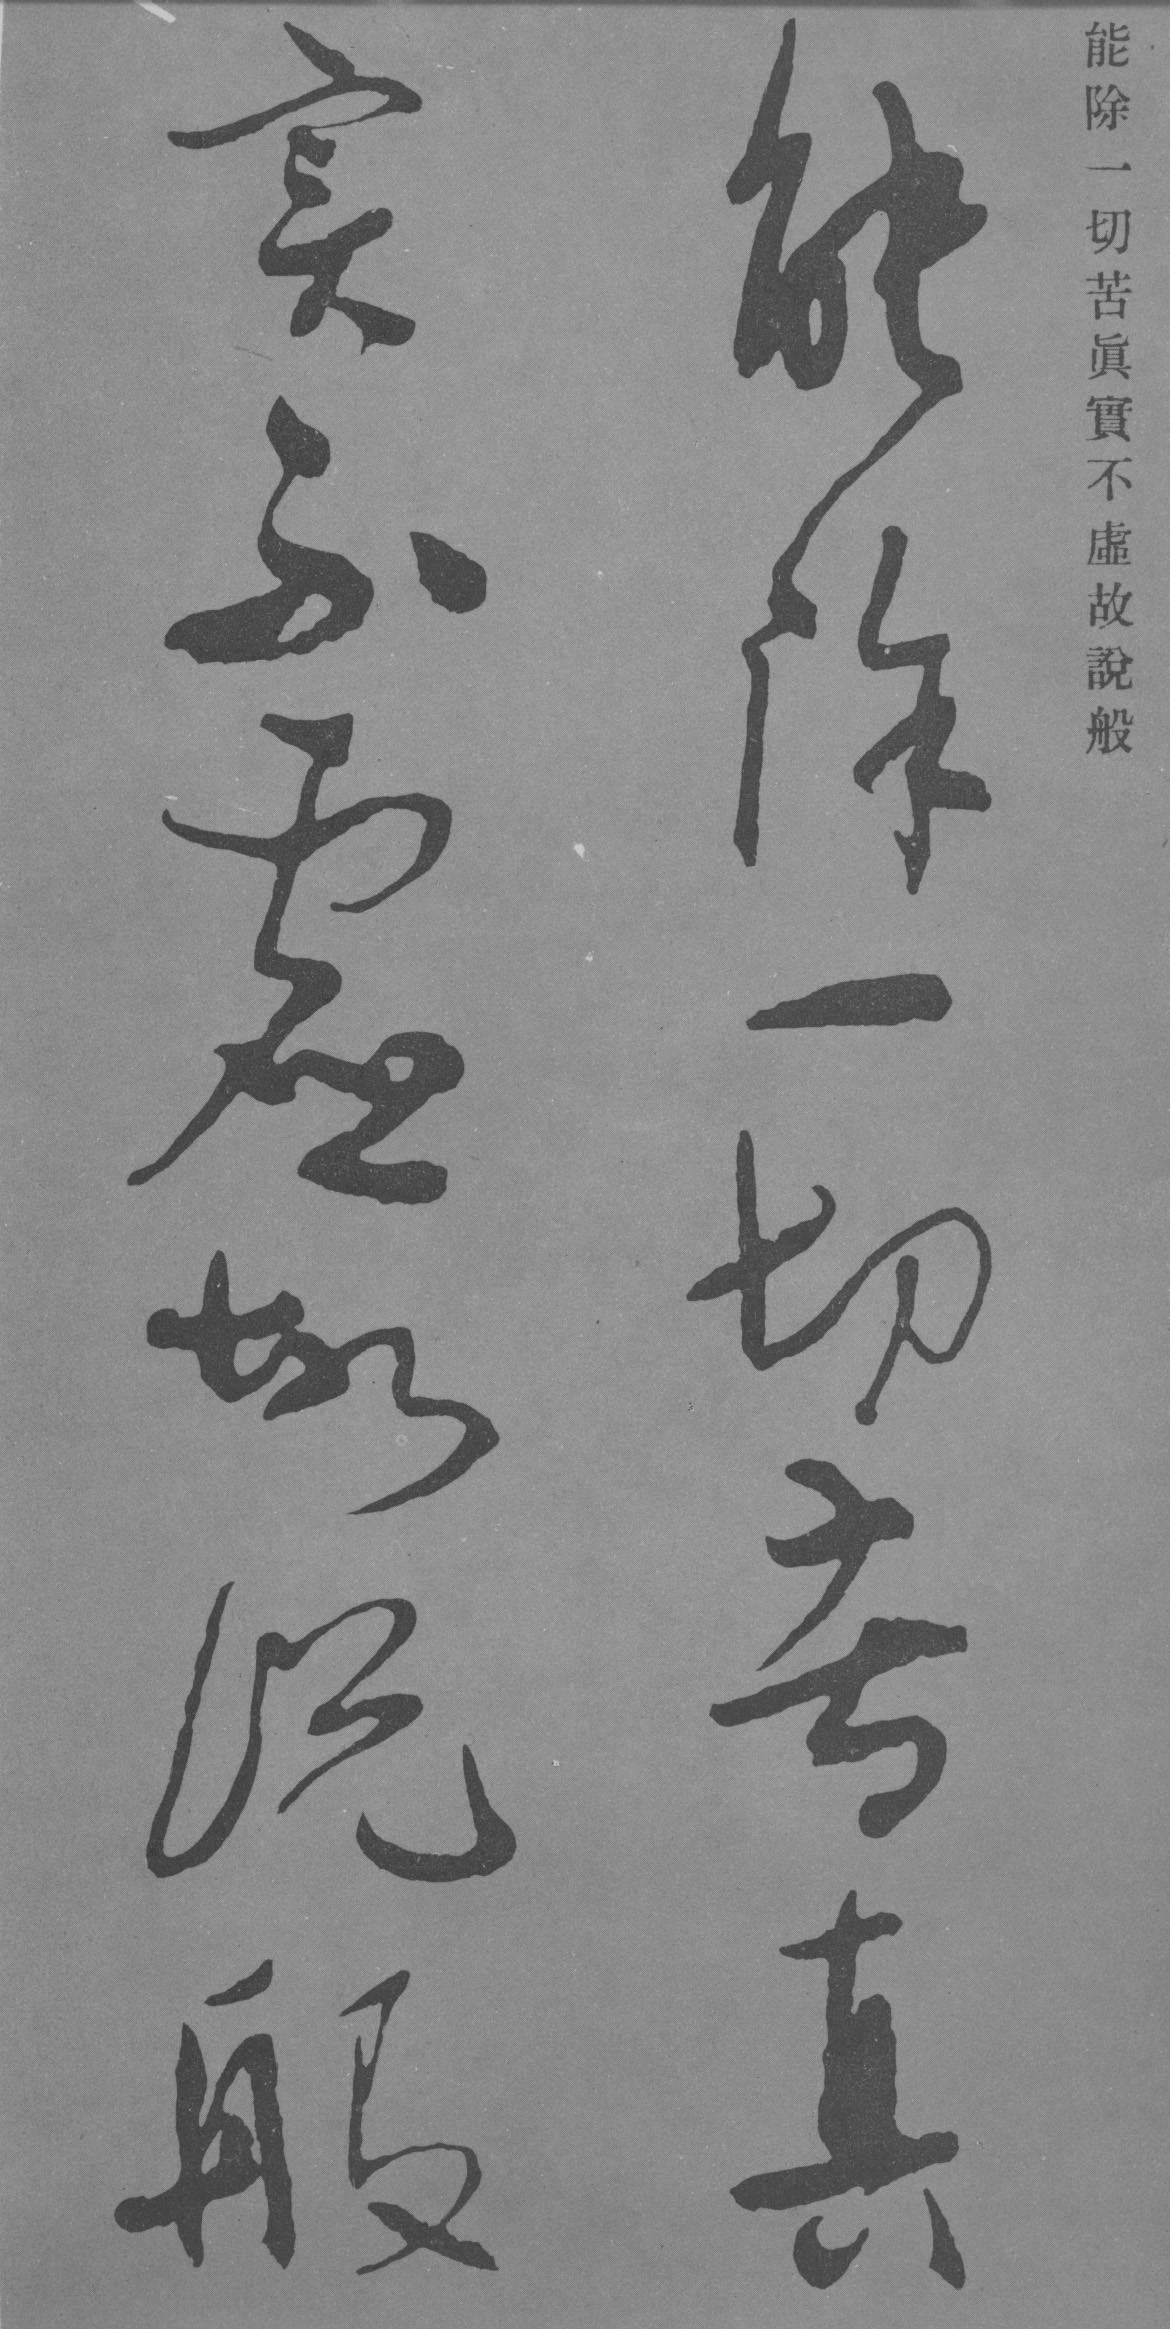 能除一切苦眞實不虛故說般
能除一切苦真
实不虚故説般